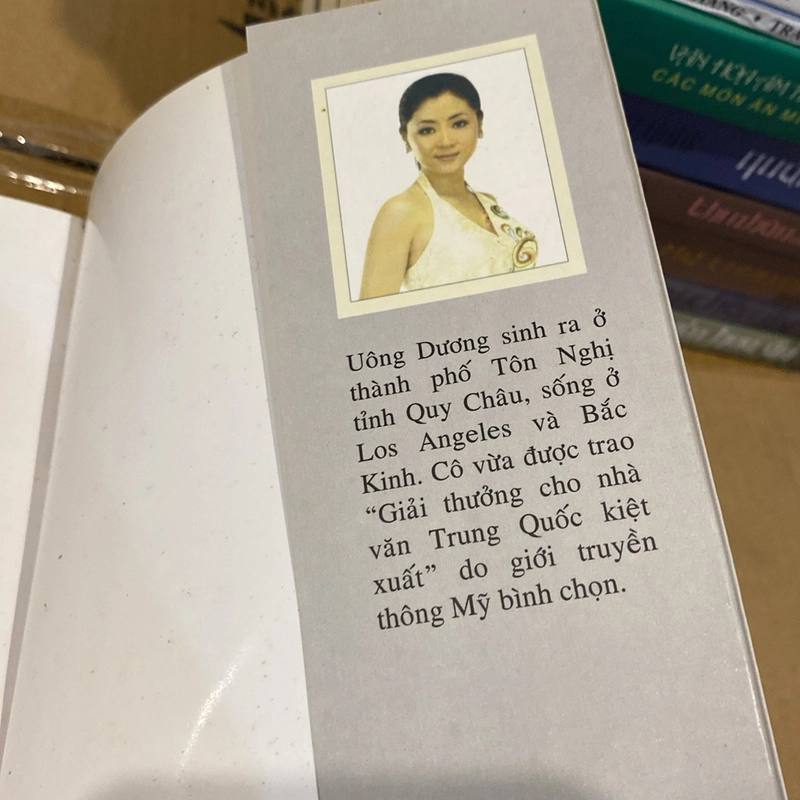 Uông Dương sinh ra ở
thành phố Tôn Nghị
tỉnh Quy Châu, sống ở
Los Angeles và Bắc
Kinh. Cô vừa được trao
“Giải thưởng cho nhà
văn Trung Quốc kiệt
xuất” do giới truyền
thông Mỹ bình chọn.
CÁC MÓN ĂN